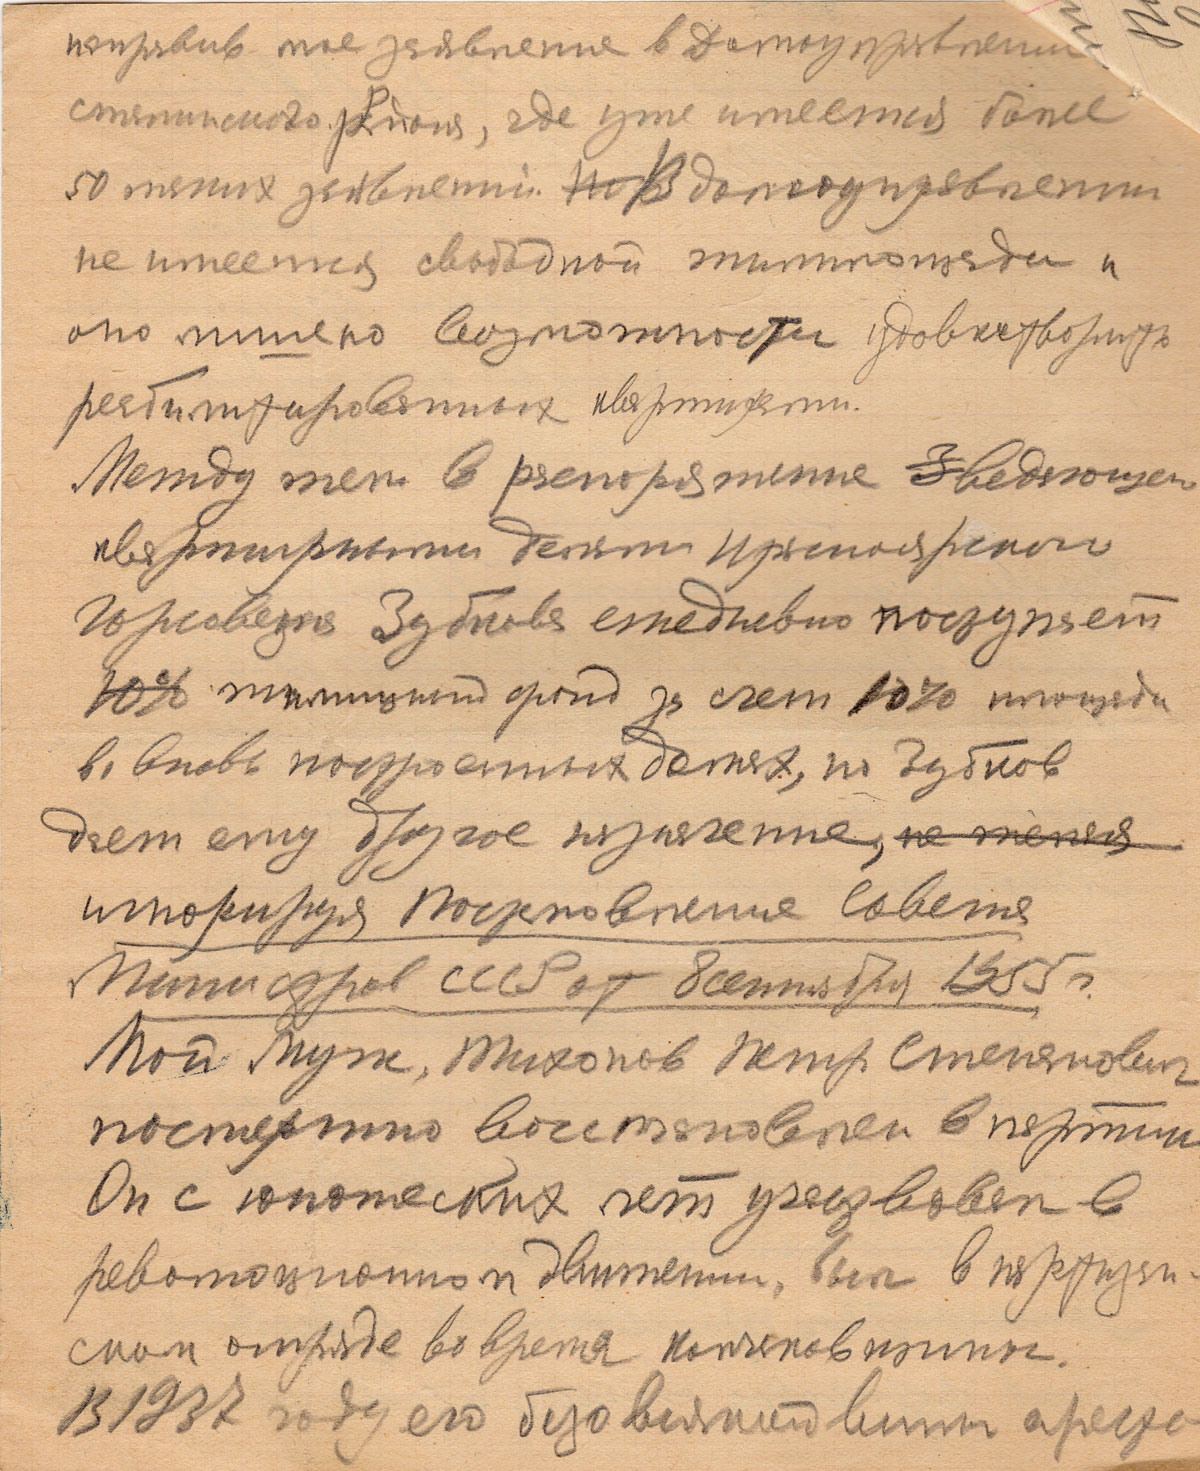 направив мое заявление в Домоуправление
сталинского района, где уже имеется более
50 таких заявлений. Но В домоуправлении
не имеется свободной жилплощади и
оно лишено возможности удовлетворить
реабилитированных квартирами.
Между тем в распоряжение Зведующем
квартирными делами Красноярского
Горсовета Зубкова ежедневно поступает
10% жилищный фонд за счет 10% площади
во вновь построенных домах, но Зубков
дает ему другое назначение, не желая
игнорируя Постановление Совета
Министров СССР от 8 сентября 1955 г.
Мой Муж, Тихонов Петр Степанович
посмертно восстановлен в партии
Он с юношеских лет участвовал в
революционном движении, был в партизан-
ском отряде во время колчаковщины.
В 1937 году его безо всякой вины аресто-